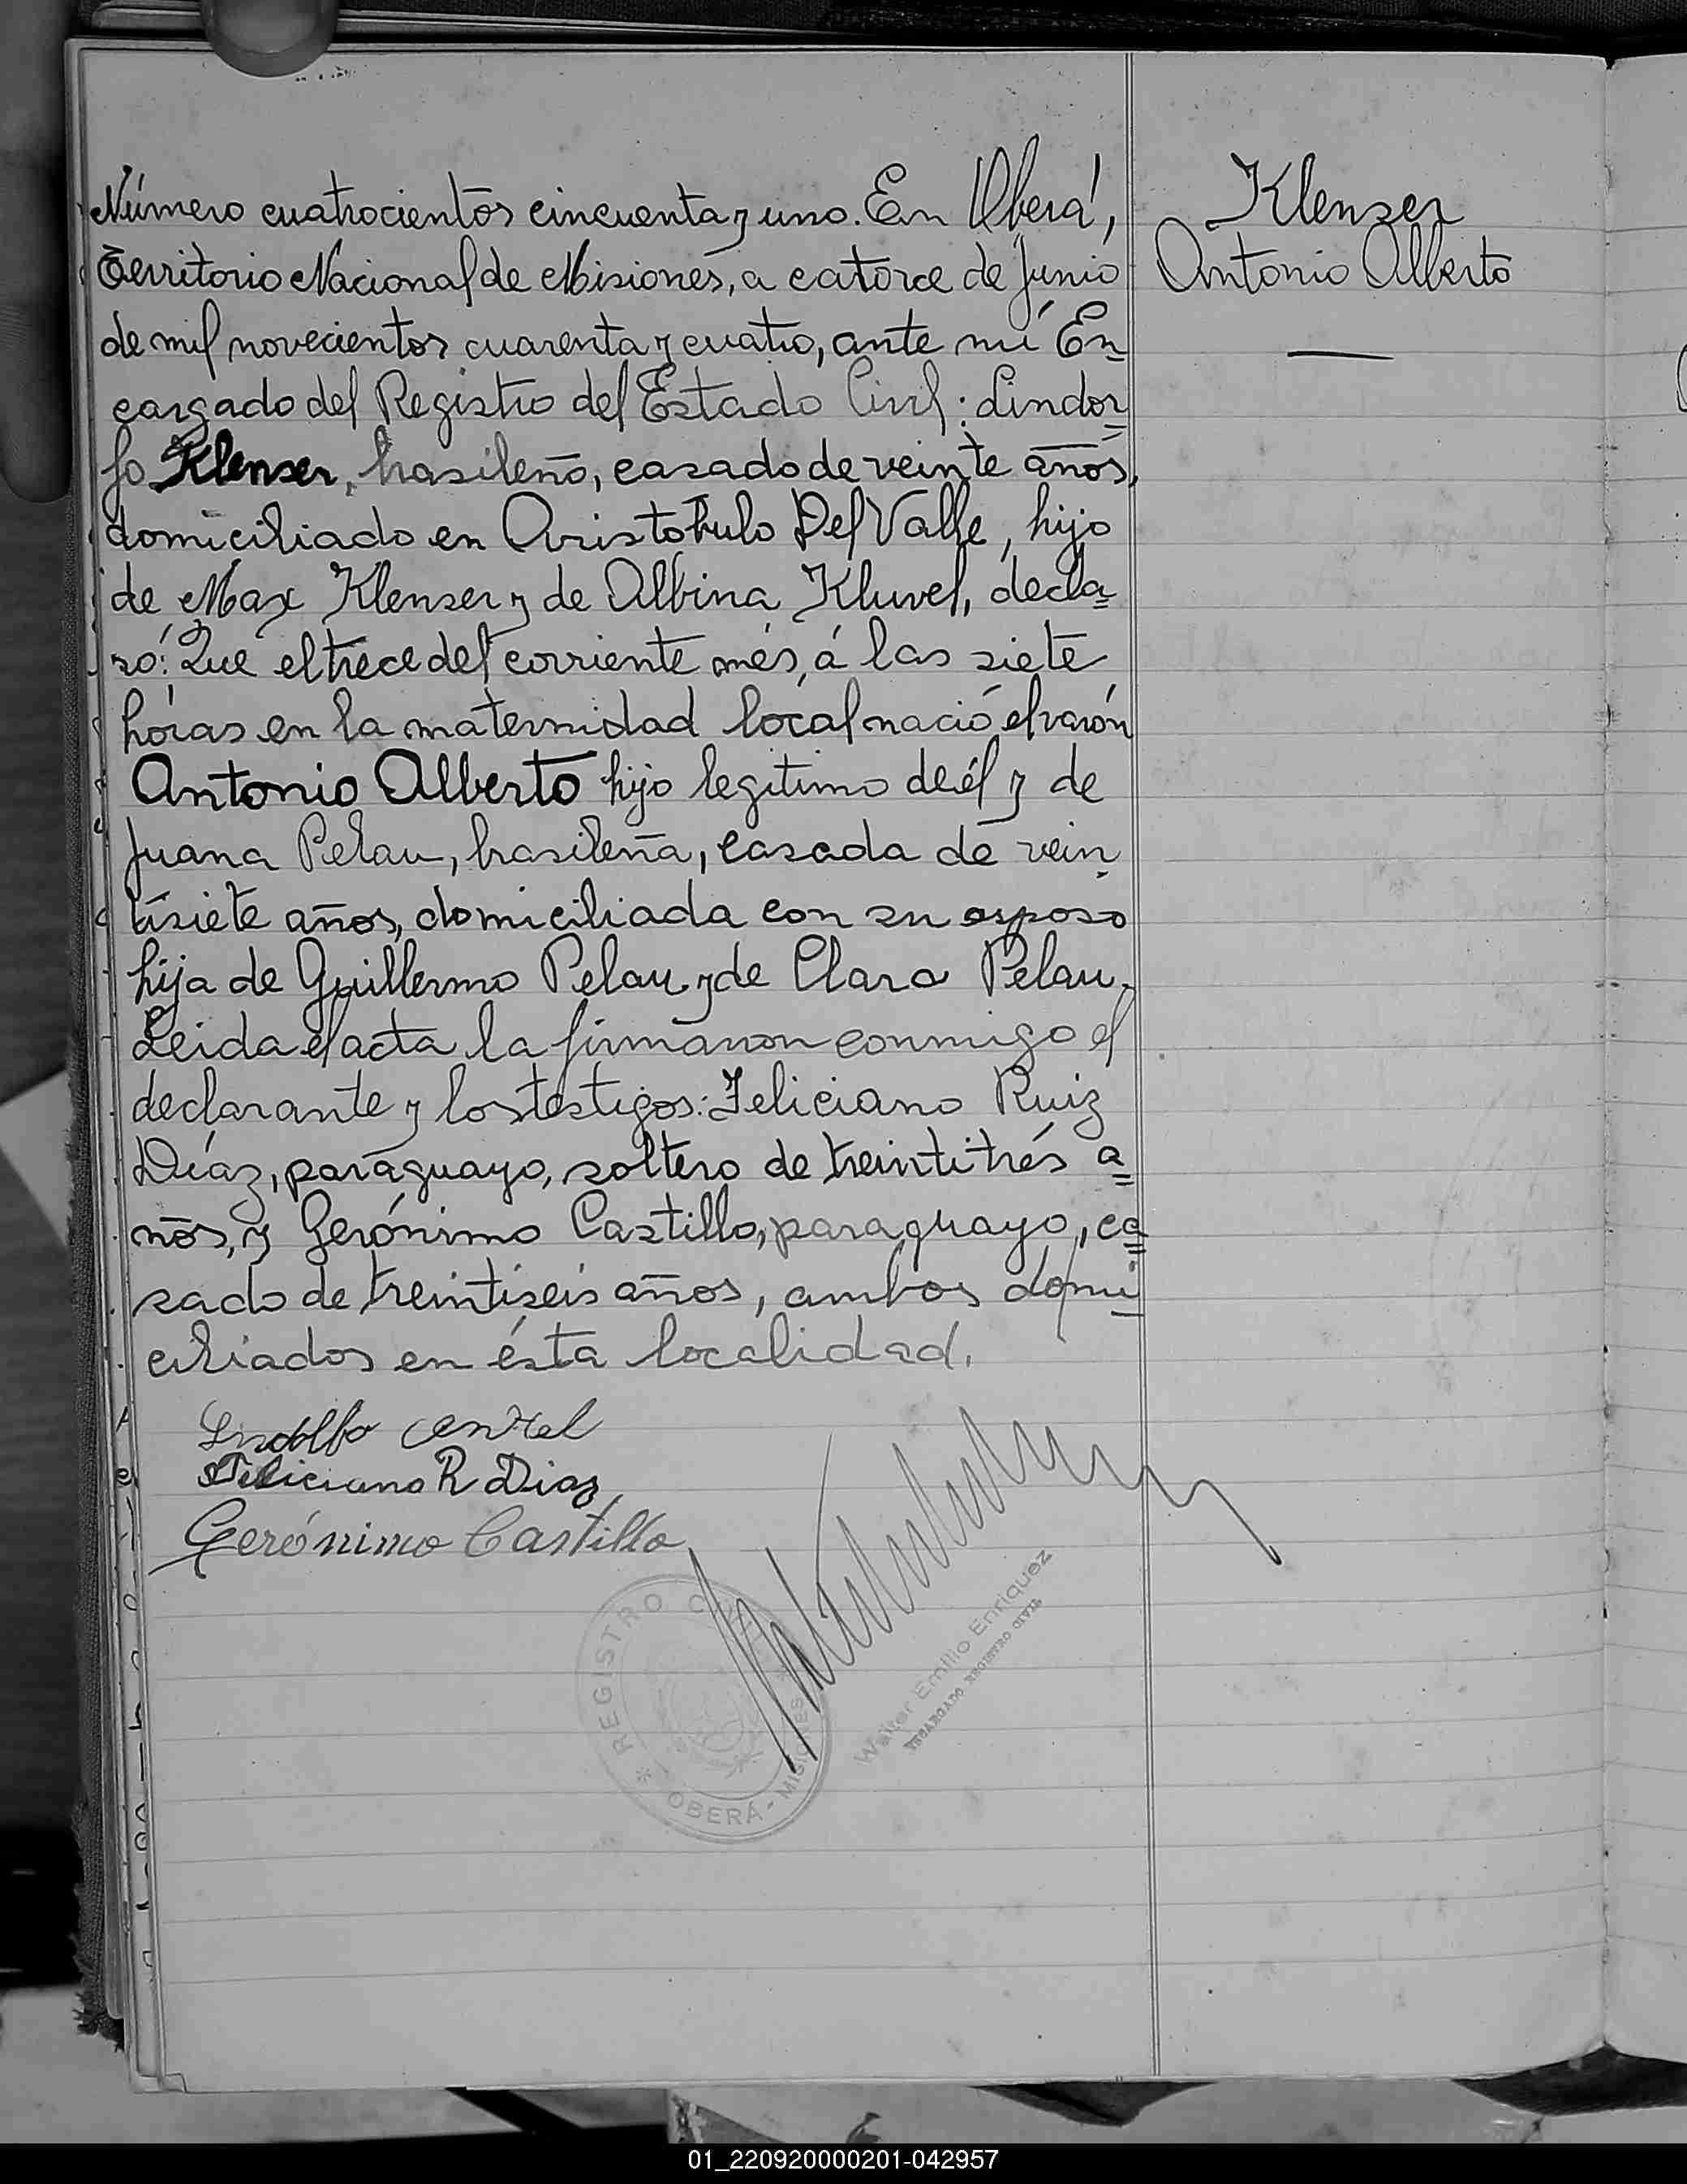 Número cuatrocientos cincuenta y uno. En Oberá,
Territorio Nacional de Misiones, a catorce de Junio
de mil novecientos cuarenta y cuatro, ante mí En
cargado del Registro del Estado Civil: Lindor
fo Klenser, brasileño, casado de veinte años,
domiciliado en Aristóbulo Del Valle, hijo
de Max Klenser y de Albina Kluvel, decla
ró: Que el trece del corriente més, á las siete
horas en la maternidad local nació el varón
Antonio Alberto hijo legítimo de él y de
Juana Pelau, brasileña, casada de vein
tisiete años, domiciliada con su esposo
hija de Guillermo Pelau y de Clara Pelau.
Leida el acta la firmaron conmigo el
declarante y los testigos: Feliciano Ruiz
Díaz, paraguayo, soltero de treintitrés a
ños, y Gerónimo Castillo, paraguayo, ca
sado de treintiseis años, ambos domi
ciliados en ésta localidad.
Klenser
Antonio Alberto
Feliciano R Diaz
Gerónimo Castillo
REGISTRO CIVIL
OBERÁ - MISIONES
Walter Emilio Enriquez
ENCARGADO REGISTRO CIVIL
01_220920000201-042957